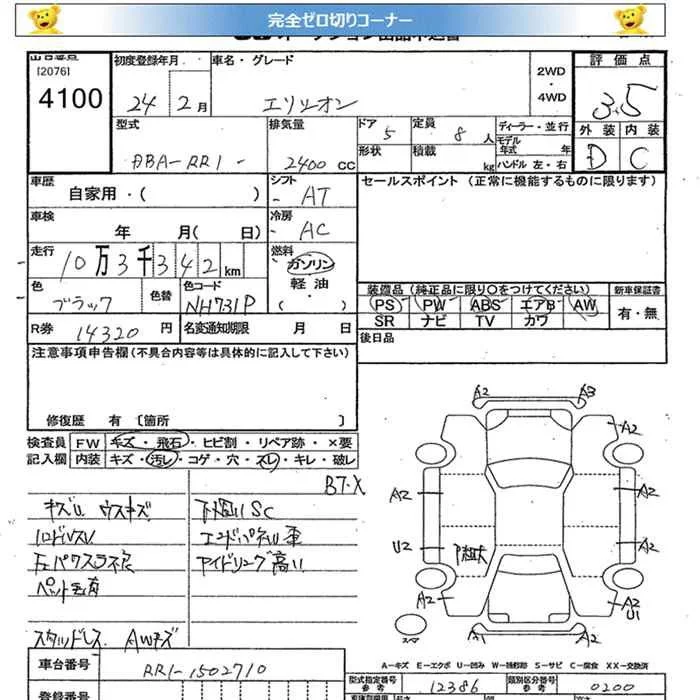 完全ゼロ切りコーナー
[2076]
4100
初度登録年月
24 2月
車名・グレード
エリシオン
2WD
・
4WD
評価点
3.5
外装 内装
D C
型式
DBA-RR1-
排気量
2400 CC
ドア 5
定員 8 人
形状
積載 kg
ディーラー・並行
モデル年式 年
ハンドル 左・右
車歴
自家用・( )
シフト
AT
セールスポイント (正常に機能するものに限ります)
車検
年 月( 日)
冷房
AC
走行
10万3千342km
燃料
ガソリン
軽油
・( )
色
ブラック
色替
色コード
NH731P
装備品 (純正品に限り○をつけてください)
PS PW ABS エアB AW
SR ナビ TV カワ
新車保証書
有・無
R券 14320 円
名変通知期限 月 日
後日品
注意事項申告欄(不具合内容等は具体的に記入して下さい)
修復歴 有 〔箇所 〕
検査員 記入欄
FW キズ・飛石・ヒビ割・リペア跡・×要
内装 キズ・汚レ・コゲ・穴・スレ・キレ・破レ
BT-X
キズU ウスキズ
下廻りSC
アイドリング高い
スタッドレス AWキズ
A2 A3
A2
A2 A2
U2 A2
A2 A2
U1
A1 A2
スペア
A-キズ E-エクボ U-凹み W-補修跡 S-サビ C-腐食 XX-交換済
車台番号
RR1-1502710
型式指定番号
参考
12386
類別区分番号
参考
0200
登録番号